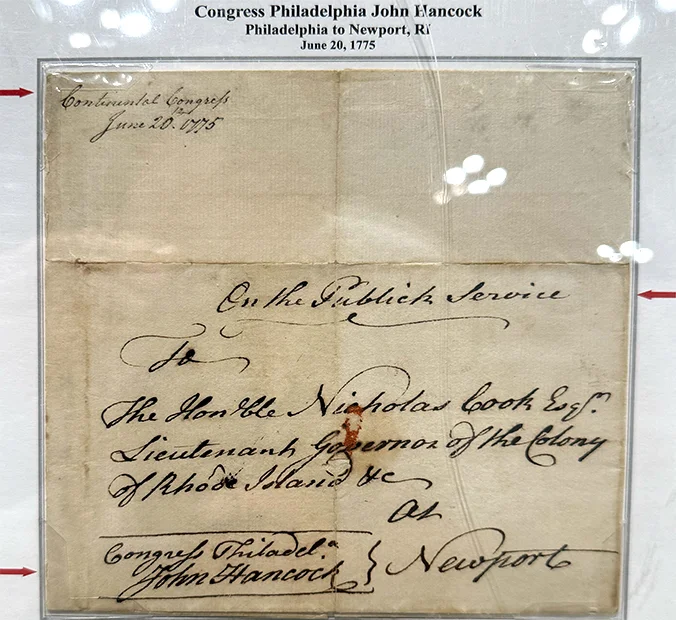 Congress Philadelphia John Hancock
Philadelphia to Newport, RI
June 20, 1775
Continental Congress
June 20. 1775
On the Publick Service
To
The Honble Nicholas Cook Esqr.
Lieutenant Governor of the Colony
of Rhode Island &c
At
Congress Philadel.a
John Hancock } Newport